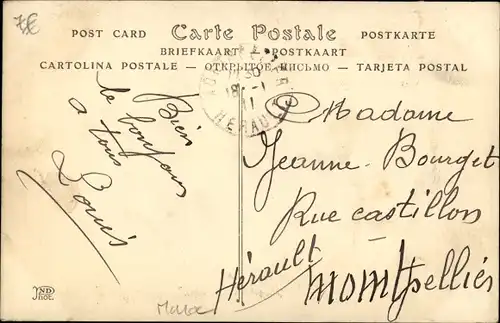 7€
POST CARD Carte Postale POSTKARTE
BRIEFKAART — POSTKAART
CARTOLINA POSTALE — ОТКРЫТОЕ ПИСЬМО — TARJETA POSTAL
18 - 1
11
HERAULT
Bien
le bonjour
a tous
Louis
Madame
Jeanne-Bourget
Rue castillon
Hérault
Montpellier
ND
Phot.